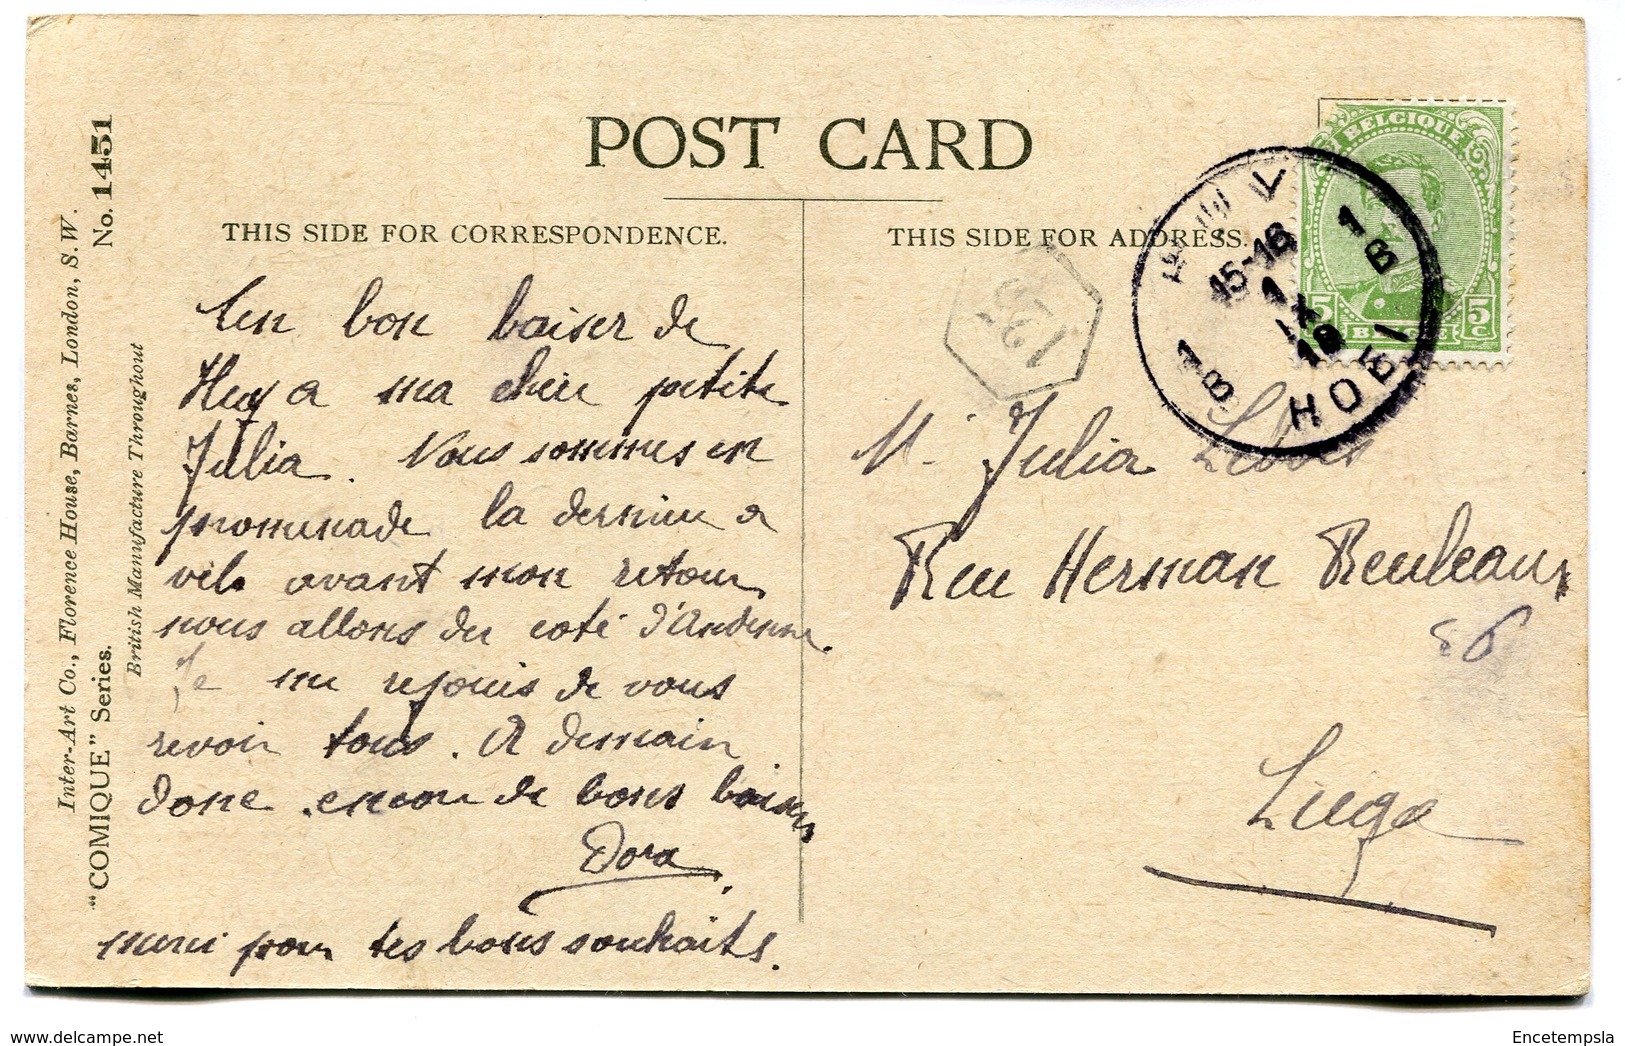 POST CARD
THIS SIDE FOR CORRESPONDENCE.
THIS SIDE FOR ADDRESS.
Inter-Art Co., Florence House, Barnes, London, S.W.
"COMIQUE" Series.
No. 1451
British Manufacture Throughout
Un bon baiser de
Huy a ma chère petite
Julia. Nous sommes en
promenade la dernière a
vélo avant mon retour
nous allons du coté d'Andenne.
Je me rejouis de vous
revoir tous. A demain
donc encore de bons baisers
Dora
merci pour tes bons souhaits.
BELGIQUE
5
5 C.
BELGIË
HUY
15-16
1
IX
19
1 B
1 B
HOEI
M. Julia
Rue Herman Reuleaux
56
Liége
Encetempsla